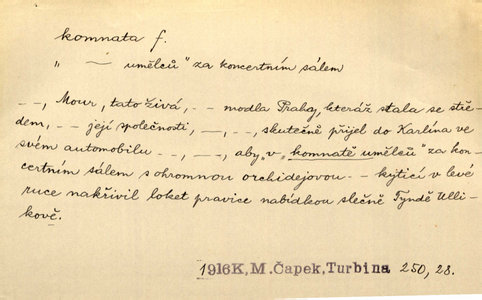 komnata f.
„ — umělců" za koncertním sálem
– –, Mour, tato živá, – – modla Prahy, kteráž stala se stře-
dem, – – její společnosti, —, – –, skutečně přijel do Karlína ve
svém automobilu – –, —, aby „v „komnatě umělců" za kon-
certním sálem s ohromnou orchidejovou – – kyticí v levé
ruce nakřivil loket pravice nabídkou slečně Tyndě Ulli-
kově.
1916K, M. Čapek, Turbina 250, 28.